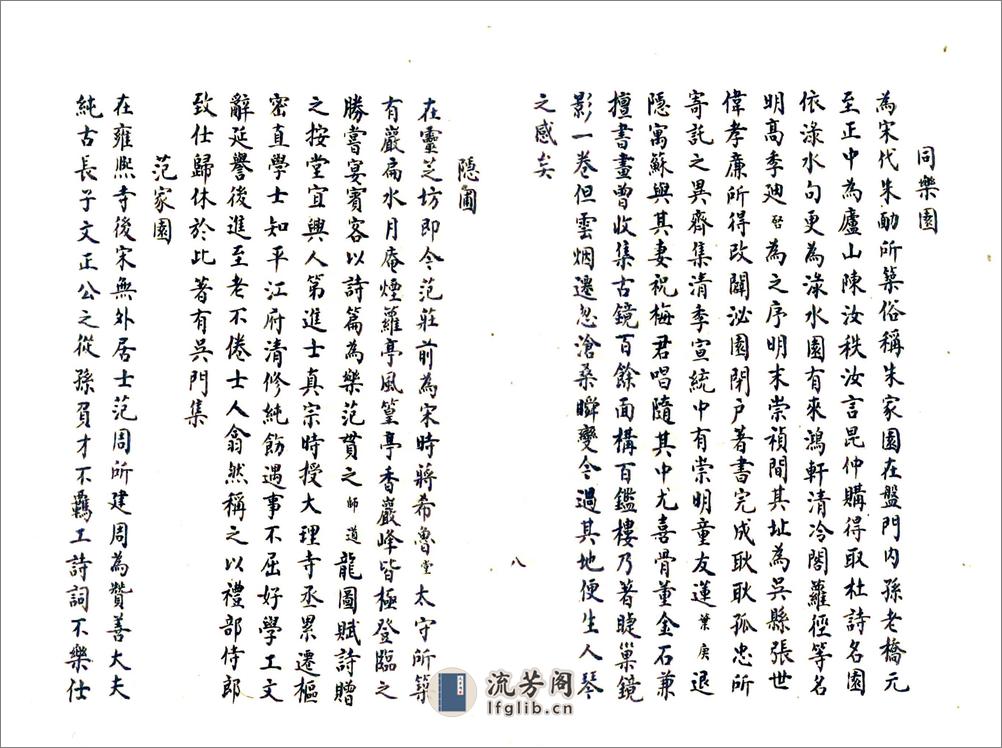 同樂園
為宋代朱勔所築俗稱朱家園在盤門內孫老橋元
至正中為廬山陳汝秩汝言昆仲購得取杜詩名園
依淥水句更為淥水園有來鴻軒清冷閣蘿徑等名
明高季迪啓為之序明末崇禎間其址為吳縣張世
偉孝廉所得改闢泌園閉戶著書完成耿耿孤忠所
寄託之異齊集清季宣統中有崇明童友蓮葉庚退
隱寓蘇與其妻祝梅君唱隨其中尤喜骨董金石兼
擅書畫曾收集古鏡百餘面構百鑑樓乃著睫巢鏡
影一卷但雲烟遷忽滄桑瞬變今過其地便生人琴
之感矣
八
隱圃
在靈芝坊即今范莊前為宋時蔣希魯堂太守所築
有巖扃水月庵煙蘿亭風篁亭香巖峰皆極登臨之
勝嘗宴賓客以詩篇為樂范貫之師道龍圖賦詩贈
之按堂宜興人第進士真宗時授大理寺丞累遷樞
密直學士知平江府清修純飭遇事不屈好學工文
辭延譽後進至老不倦士人翕然稱之以禮部侍郎
致仕歸休於此著有吳門集
范家園
在雍熙寺後宋無外居士范周所建周為贊善大夫
純古長子文正公之從孫負才不羈工詩詞不樂仕
流芳阁
lfglib.cn